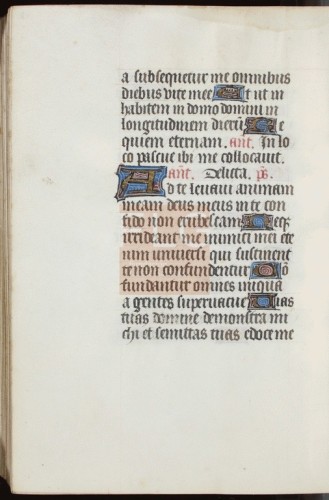 a subsequetur me omnibus
diebus vite mee Et ut in
habitem in domo domini in
longitudinem dierū Re
quiem eternam. ant. In lo
co pascue ibi me collocavit.
ant. Delicta. ps.
Ad te levavi animam
meam deus meus in te con
fido non erubescam Neqꝫ
irrideant me inimici mei ete
nim universi qui sustinent
te non confundentur Cō
fundantur omnes iniqua
agentes supervacue Vias
tuas domine demonstra mi
chi et semittas tuas edoce me